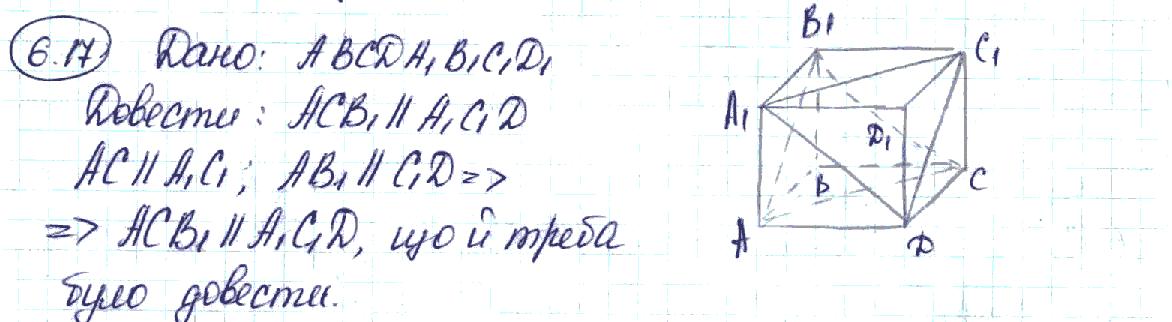 6.17 Дано: ABCDA₁B₁C₁D₁
Довести: ACB₁ || A₁C₁D
AC || A₁C₁; AB₁ || C₁D =>
=> ACB₁ || A₁C₁D, що й треба
було довести.
B₁
C₁
A₁
D₁
B
C
A
D